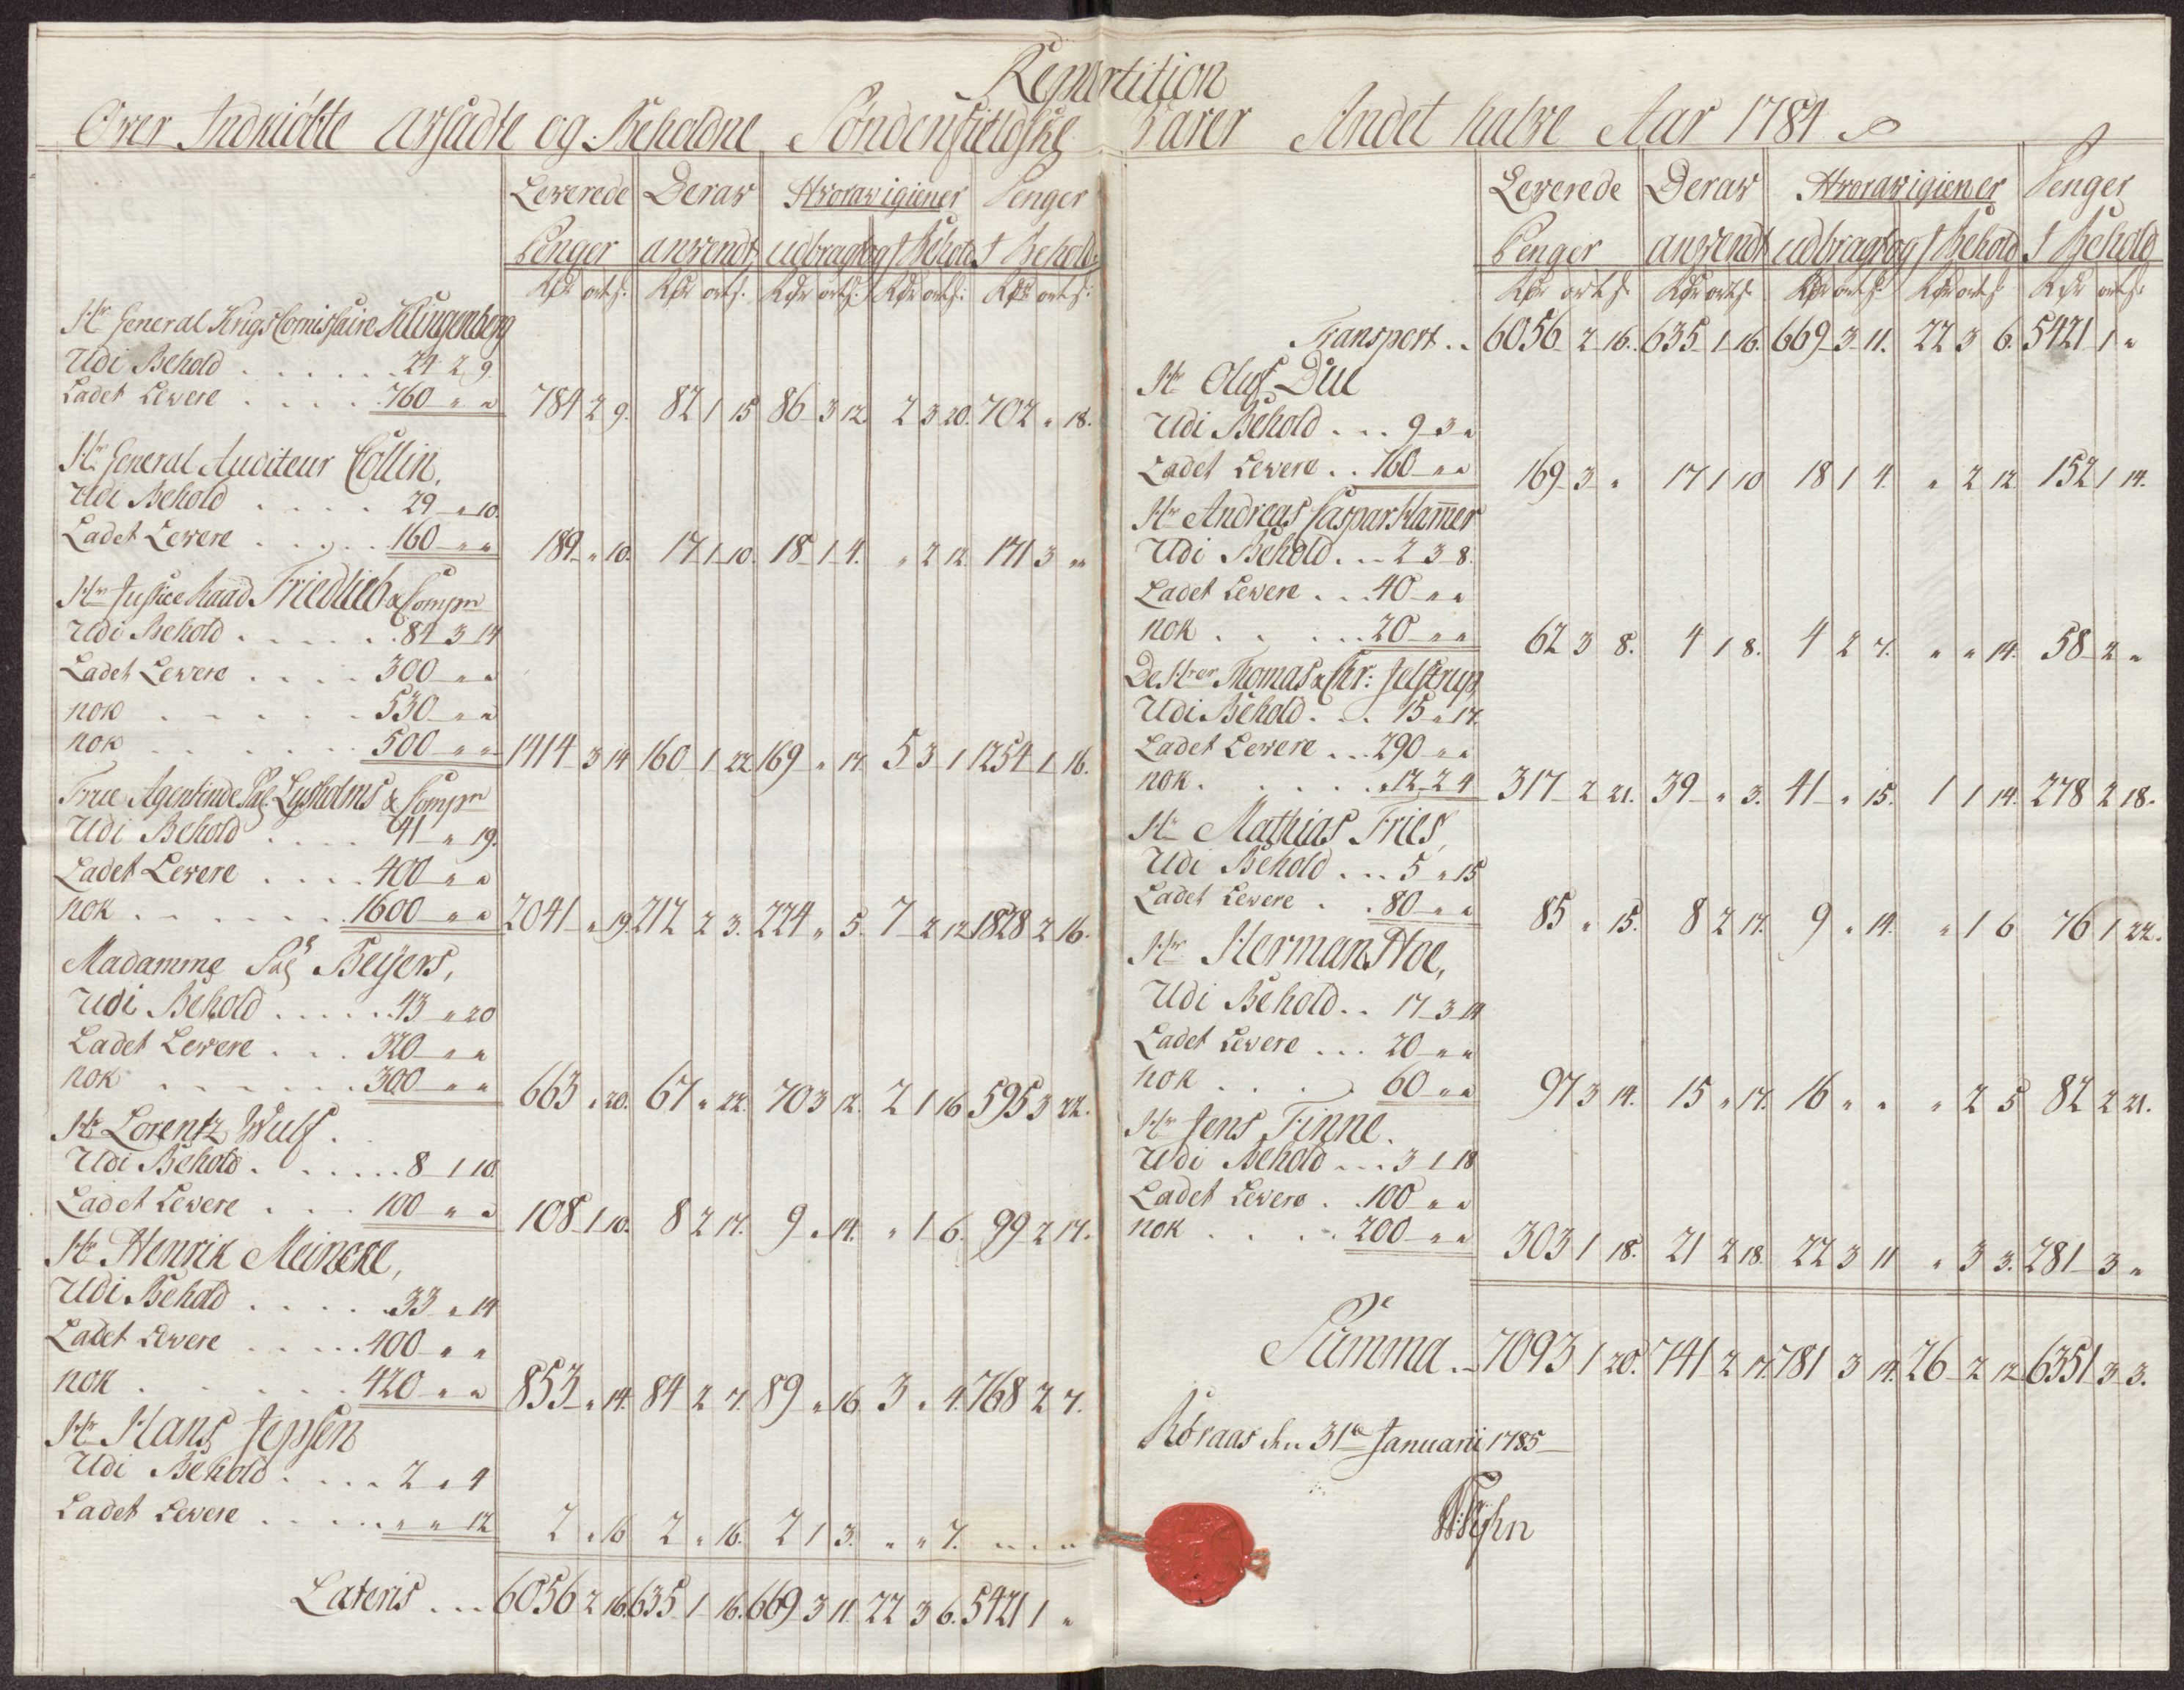 Repartition
Over Indkiöbte Afsadte og Beholdne Söndenfieldske Varer Andet halve Aar 1784
Leverede Derav Hvoravigiener Penger
Penger anvendt udbragt og I Behold I Behold
Rdr ort s: Rdr ort s: Rdr ort s: Rdr ort s: Rdr ort s:
Hr General Krigs Comissaire Klingenberg
Udi Behold . . . . . . 24 2 9.
Ladet Levere . . . . 760 " " 784 2 9. 82 1 15 86 3 12 2 3 20. 702 " 18.
Hr General Auditeur Collin,
Udi Behold . . . . 29 " 10.
Ladet Levere . . . . . 160 " " 189 " 10. 17 1 10. 18 1 4. " 2 12. 171 3 "
Hr Justice Raad Friedlieb & Compn
Udi Behold . . . . . . 84 3 14
Ladet Levere . . . . 300 " "
nok . . . . . . 530 " "
nok . . . . . . 500 " " 1414 3 14 160 1 22 169 " 17. 5 3 1 1254 1 16.
Frue Agentinde Sal. Lysholms & Compn
Udi Behold . . . . 41 " 19.
Ladet Levere . . . . 400 " "
nok . . . . . . . 1600 " " 2041 " 19 212 2 3. 224 " 5. 7 2 12 1828 2 16.
Madamme Sal Beÿers,
Udi Behold . . . . . 43 " 20
Ladet Levere . . . 320 " "
nok . . . . . . 300 " " 663 " 20. 67 " 22. 70 3 12. 2 1 16 595 3 22.
Hr Lorentz Wulf.
Udi Behold . . . . . . 8 1 10.
Ladet Levere . . . 100 " " 108 1 10. 8 2 17. 9 " 14. " 1 6. 99 2 17.
Hr Henrik Meincke,
Udi Behold . . . . . 33 " 14
Ladet Levere . . . . . 400 " "
nok . . . . . . 420 " " 853 " 14. 84 2 7. 89 " 16. 3 " 4. 768 2 7.
Hr Hans Jepsen
Udi Behold . . . . . 2 " 4
Ladet Levere . . . . . " " 12 2 " 16 2 " 16. 2 1 3. " " 7. " " "
Lateris . . . 6056 2 16. 635 1 16. 669 3 11. 22 3 6. 5421 1 "
Leverede Derav Hvoravigiener Penger
Penger anvendt udbragt og I Behold I Behold
Rdr ort s: Rdr ort s: Rdr ort s: Rdr ort s: Rdr ort s:
Transport . . 6056 2 16. 635 1 16. 669 3 11. 22 3 6. 5421 1 "
Hr Oluf Due
Udi Behold . . . 9 3 "
Ladet Levere . . 160 " " 169 3 " 17 1 10 18 1 4. " 2 12 152 1 14.
Hr Andreas Caspar Ham̅er
Udi Behold . . . 2 3 8.
Ladet Levere . . . 40 " "
nok . . . . . 20 " " 62 3 8. 4 1 8. 4 2 7. " " 14. 58 2 "
De Hrer Thomas & Chr: Jelstrup
Udi Behold . . . 15 " 17.
Ladet Levere . . . 290 " "
nok . . . . . . 12 2 4 317 2 21. 39 " 3. 41 " 15. 1 1 14. 278 2 18.
Hr Mathias Fries,
Udi Behold . . . 5 " 15
Ladet Levere . . 80 " " 85 " 15. 8 2 17. 9 " 14. " 1 6 76 1 22.
Hr Herman Hoe,
Udi Behold . . 17 3 14
Ladet Levere . . . 20 " "
nok . . . . 60 " " 97 3 14. 15 " 17. 16 " " " 2 5 82 2 21.
Hr Jens Finne.
Udi Behold . . . 3 1 18
Ladet Levere . . 100 " "
nok . . . . . 200 " " 303 1 18. 21 2 18. 22 3 11 " 3 3. 281 3 "
Summa . . 7093 1 20. 741 2 17. 781 3 14. 26 2 12 6351 3 3.
Röraas den 31te Januarii 1785